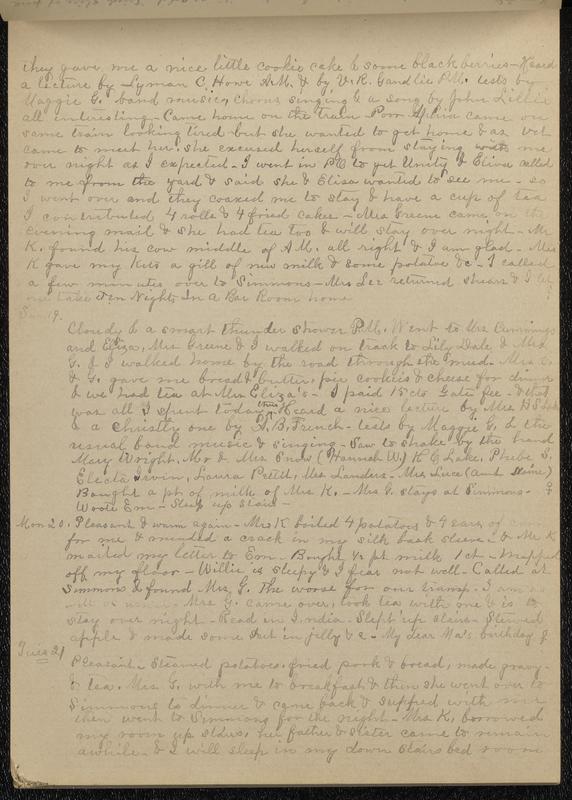 they gave me a nice little cookie cake & some blackberries - Heard
a lecture by Lyman C. Howe A.M. & by V.R. P.M. tests by
Maggie G. band music, chorus singing & a song by John Lillie
all interesting - Came home on the train Poor came on
same train looking tired but she wanted to get home & as
came to meet her, she excused herself from staying with me
over night as I expected - I went in P.O to get Unity & Eliza called
to me from the yard & said she & Eliza wanted to see me - so
I went over and they coaxed me to stay & have a cup of tea
I contributed 4 rolls & 4 fried cakes - Mrs Greene came on the
evening mail & she had tea too & will stay over night - Mr
K. found his cow middle of A.M. all right & I am glad - Mrs
K gave my Kits a gill of new milk & some potatoe &c - I called
a few minutes over to Simmons - Mrs Lee returned & I let
me take Ten Nights In a Bar Room home
Sun 19.
Cloudy & a smart thunder shower P.M. Went to Mrs Cummings
and Eliza, Mrs Greene & I walked on track to Lily Dale & Mrs
G. & I walked home by the road through the mud - Mrs C.
& G. gave me bread & butter, pie cookies & cheese for dinner
& we had tea at Mrs Eliza's - I paid 15 cts Gate fee - & that
was all I spent today - Heard a nice lecture by Mrs H S
& a Christly one by A. B. French - tests by Maggie G. & the
usual band music & singing - Saw to shake by the hand
Mary Wright, Mr & Mrs Snow (Hannah W.) K C Lake, Phebe S,
Electa Irvin, Laura Pettit, Mrs Landers, Mrs Luce (aunt )
Bought a pt of milk of Mrs K. - Mrs G. stays at Simmons -
Wrote Em - Sleep up stairs -
Mon 20. Pleasant & warm again - Mrs K boiled 4 potatoes & 4 ears of
for me & mended a crack in my silk bask sleeve - & Mr K
mailed my letter to Em - Bought ½ pt milk 1 ct - Mopped
off my floor - Willie is sleepy & I fear not well - Called at
Simmons & found Mrs G. the worse for our tramp. I am
Mrs G. came over, took tea with me & is to
stay over night - Read in India - Slept up stairs - Stewed
apple & made some put in jelly &c - My dear Ma's birthday
Tues 21
Pleasant - Steamed potatoes, fried pork & bread, made gravy -
& tea. Mrs G. with me to breakfast & then she went over to
Simmons to dinner & came back & supped with me
then went to Simmons for the night - Mrs K. borrowed
my room up stairs, her father & sister came to remain
awhile - & I will sleep in my down stairs bed room